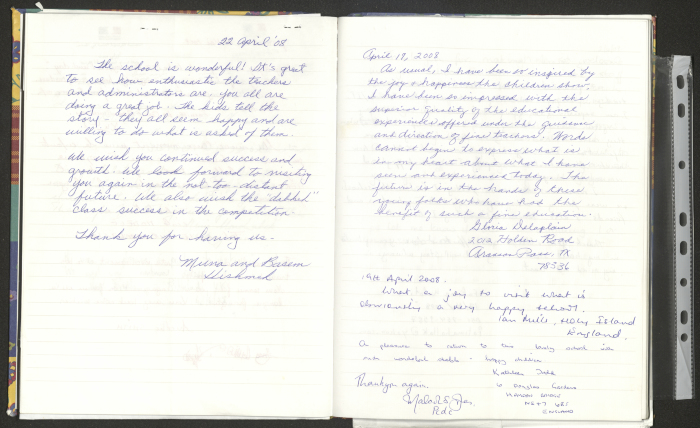 22 April '08
The school is wonderful! It's great
to see how enthusiastic the teachers
and administrators are. You all are
doing a great job. The kids tell the
story - they all seem happy and are
willing to do what is asked of them.
We wish you continued success and
growth. We look forward to visiting
you again in the not-too-distant
future. We also wish the
class success in the competition.
Thank you for having us.
Muna and Basem
Hishmed
April 19, 2008
As usual, I have been so inspired by
the joy & happiness the children show.
I have been so impressed with the
superior quality of the educational
experiences offered under the guidance
and direction of fine teachers. Words
cannot begin to express what is
in my heart about what I have
seen and experienced today. The
future is in the hands of these
young folks who have had the
benefit of such a fine education.
Gloria Delaplain
2012 Holden Road
Aransas Pass, TX
78336
19th April 2008.
What a joy to visit what is
obviously a very happy school.
Ian Mills, Holy Island
England.
A pleasure to return to this lovely school
with wonderful
Kathleen
Thankyou again.
ENGLAND